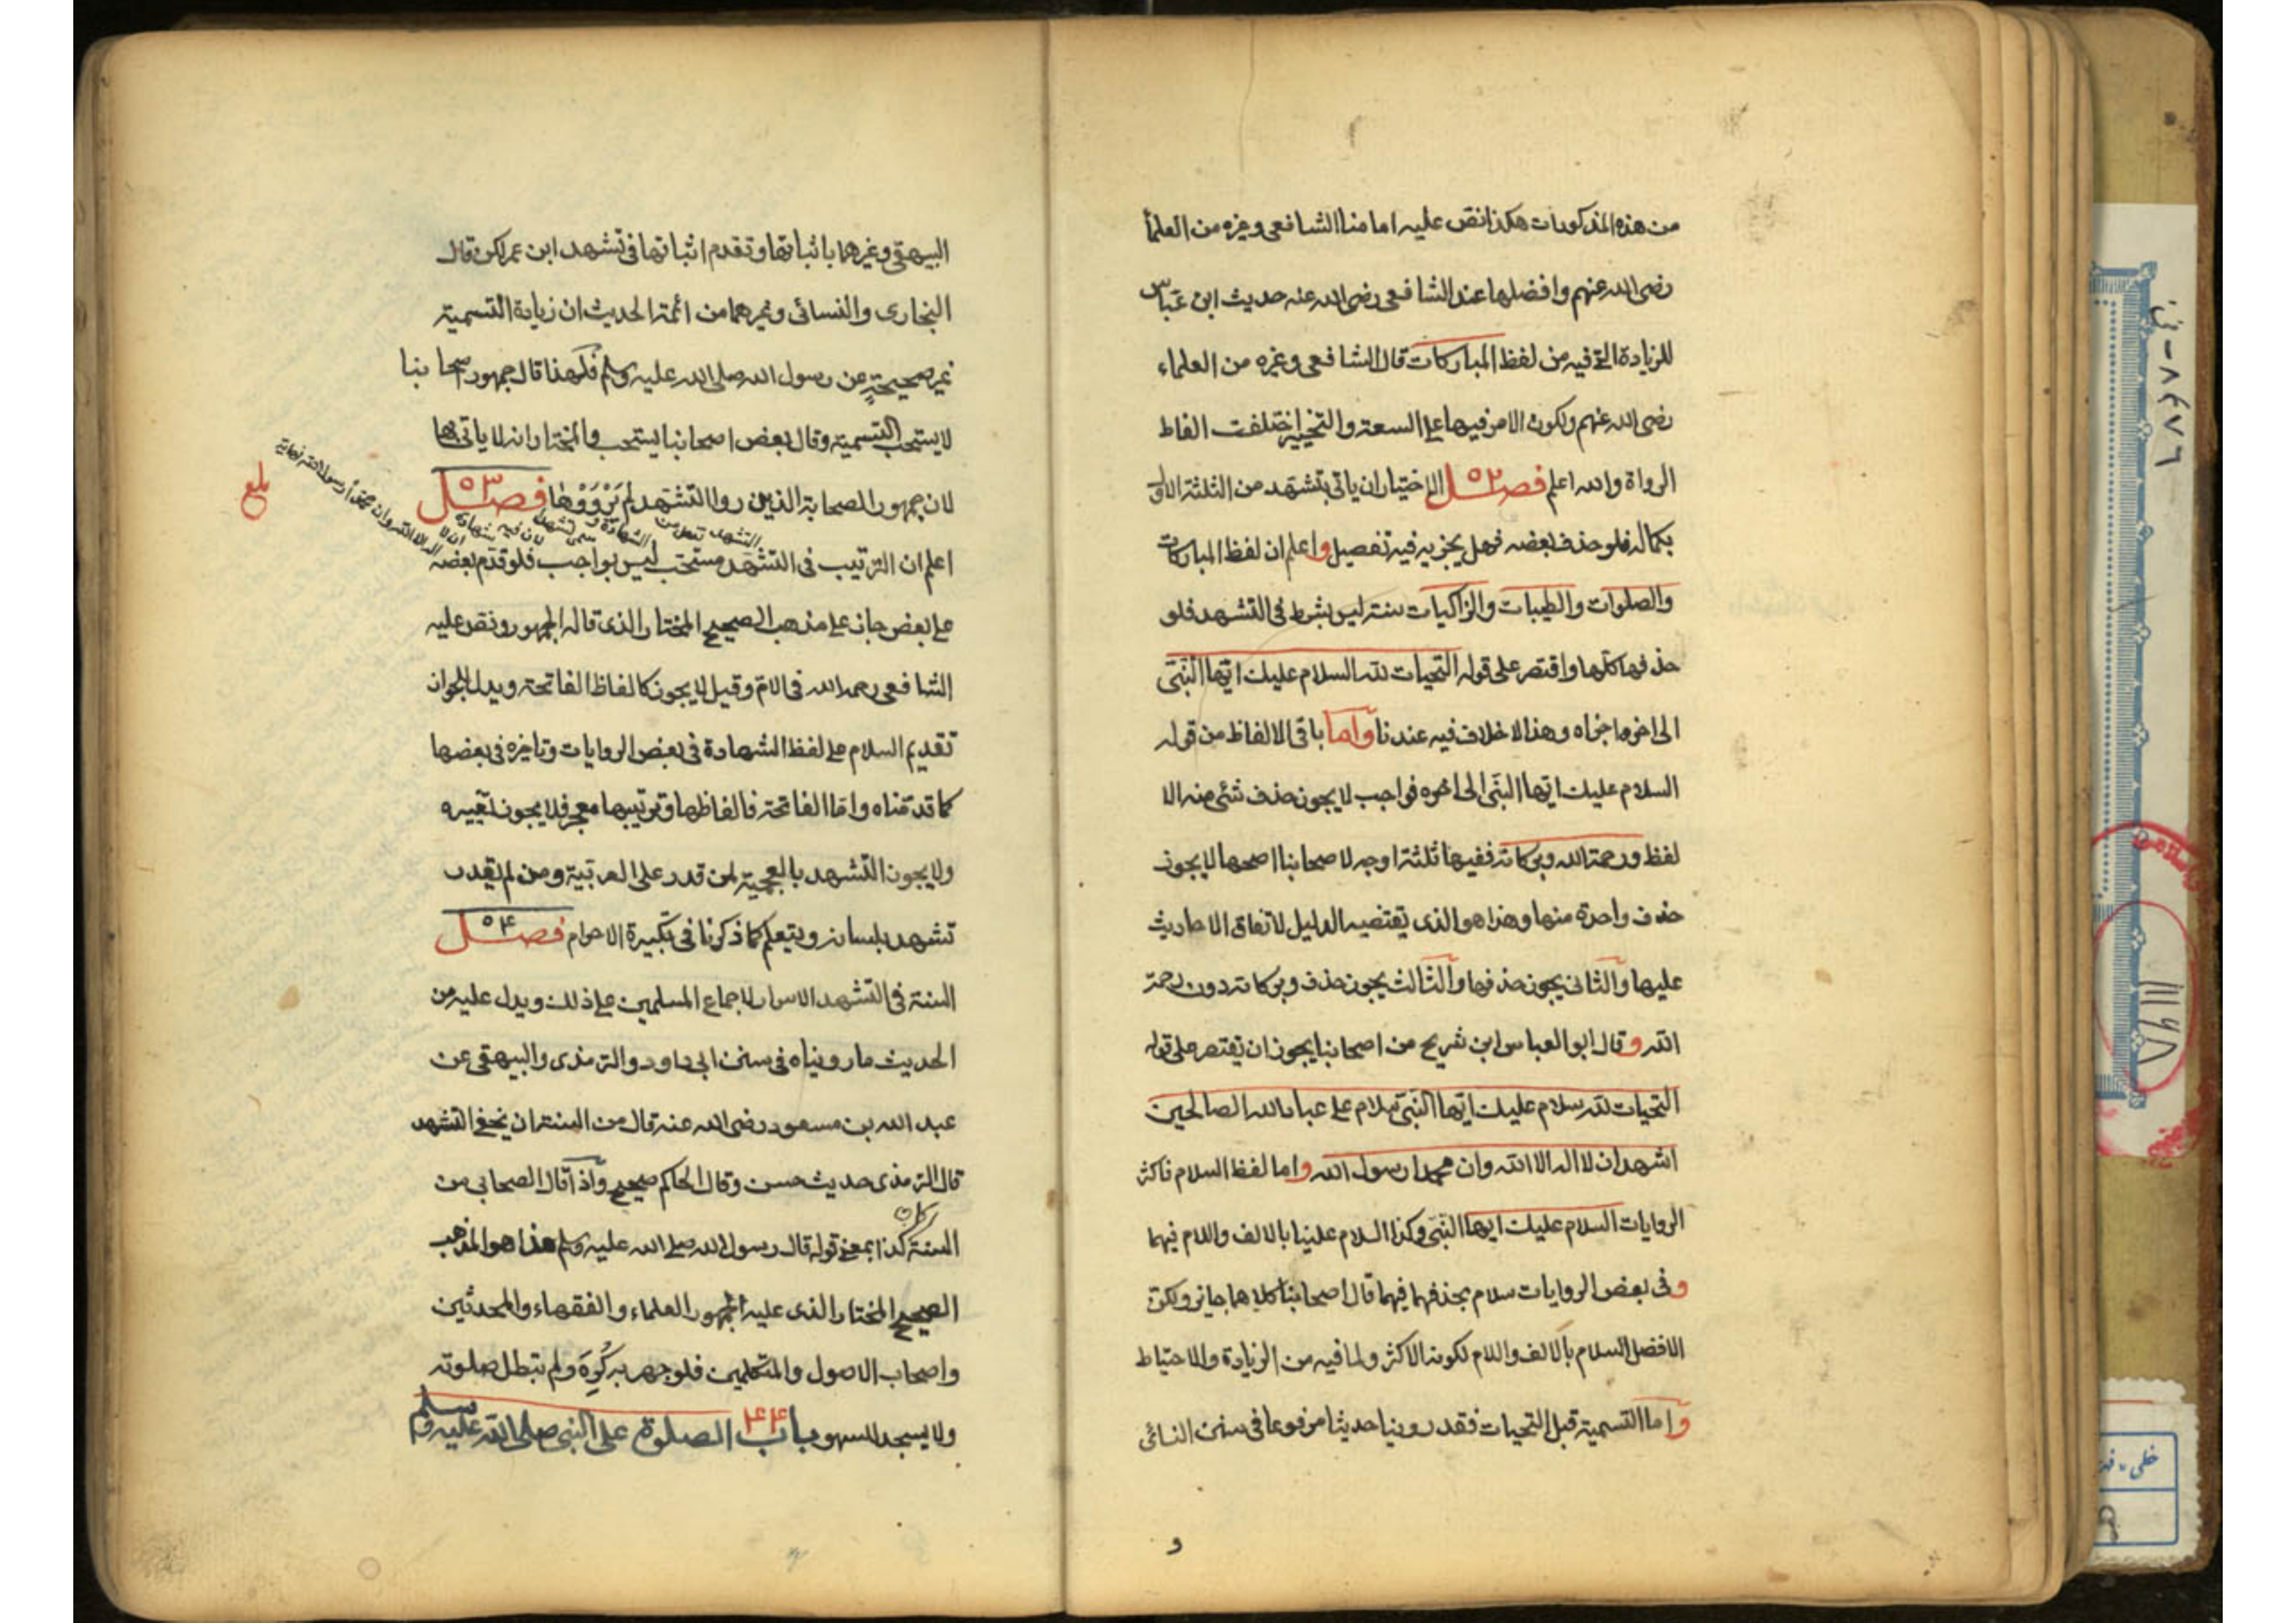 من هذه المذكورات هكذا نص عليه امامنا الشافعي وغيره من العلمأ
رضي الله عنهم وافضلها عند الشافعي رضي الله عنه حديث ابن عباس
للزيادة التي فيه من لفظ المباركات قال الشافعي وغيره من العلماء
رضي الله عنهم ولكون الامر فيها على السعة والتخيير اختلفت الفاظ
الرواة والله اعلم فصل ٥٢ الاختيار ان ياتي بتشهد من الثلثة الاول
بكماله فلو حذف بعضه فهل يجزيه فيه تفصيل واعلم ان لفظ المباركات
والصلوات والطيبات والزاكيات سنة ليس بشرط في التشهد فلو
حذفها كلها واقتصر على قوله التحيات لله السلام عليك ايها النبي
الى اخرها اجزاه وهذا لا خلاف فيه عندنا واما باقي الالفاظ من قوله
السلام عليك ايها النبي الى اخره فواجب لا يجوز حذف شئ منه الا
لفظ ورحمة الله وبركاته ففيها ثلثة اوجه لاصحابنا اصحها لا يجوز
حذف واحدة منها وهذا هو الذي يقتضيه الدليل لاتفاق الاحاديث
عليها والثاني يجوز حذفها والثالث يجوز حذف وبركاته دون رحمة
الله وقال ابو العباس ابن شريح من اصحابنا يجوز ان يقتصر على قوله
التحيات لله سلام عليك ايها النبي سلام على عباد الله الصالحين
اشهد ان لا اله الا الله وان محمدا رسول الله واما لفظ السلام فاكثر
الروايات السلام عليك ايها النبي وكذا السلام علينا بالالف واللام فيهما
وفي بعض الروايات سلام بحذفهما فيهما قال اصحابنا كلاهما جايز ولكن
الافضل السلام بالالف واللام لكونه الاكثر ولما فيه من الزيادة والاحتياط
واما التسمية قبل التحيات فقد روينا حديثا مرفوعا في سنن النسائي
و
البيهقي وغيرهما باثباتها وتقدم اثباتها في تشهد ابن عمر لكن قال
البخاري والنسائي وغيرهما من ائمة الحديث ان زيادة التسمية
غير صحيحة عن رسول الله صلى الله عليه وسلم فلهذا قال جمهور اصحابنا
لا يستحب التسمية وقال بعض اصحابنا يستحب والمختار انه لا ياتي بها
لان جمهور الصحابة الذين رووا التشهد لم يرووها فصل ٥٣
بلغ
اعلم ان الترتيب في التشهد مستحب ليس بواجب فلو قدم بعضه
على بعض جاز على مذهب الصحيح المختار الذي قاله الجمهور ونص عليه
الشافعي رحمه الله في الام وقيل لا يجوز كالفاظ الفاتحة ويدل للجواز
تقديم السلام على لفظ الشهادة في بعض الروايات وتاخيره في بعضها
كما قدمناه واما الفاتحة فالفاظها وترتيبها معجز فلا يجوز تغييره
ولا يجوز التشهد بالعجمية لمن قدر على العربية ومن لم يقدر
تشهد بلسانه ويتعلم كما ذكرنا في تكبيرة الاحرام فصل ٥٤
السنة في التشهد الاسرار لاجماع المسلمين على ذلك ويدل عليه من
الحديث ما رويناه في سنن ابي داود والترمذي والبيهقي عن
عبد الله بن مسعود رضي الله عنه قال من السنة ان يخفى التشهد
قال الترمذي حديث حسن وقال الحاكم صحيح واذا قال الصحابي من
السنة كذا بمعنى قوله قال رسول الله صلى الله عليه وسلم هذا هو المذهب
الصحيح المختار الذي عليه الجمهور العلماء والفقهاء والمحدثين
واصحاب الاصول والمتكلمين فلو جهر به كُرِهَ ولم تبطل صلوته
ولا يسجد للسهو باب ٤٤ الصلوة على النبي صلى الله عليه وسلم